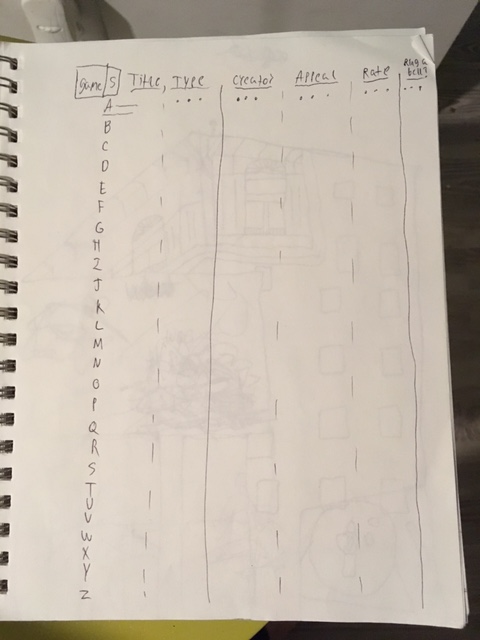 Game S Title, Type Creator Appeal Rate Ring a bell?
A
B
C
D
E
F
G
H
I
J
K
L
M
N
O
P
Q
R
S
T
U
V
W
X
Y
Z